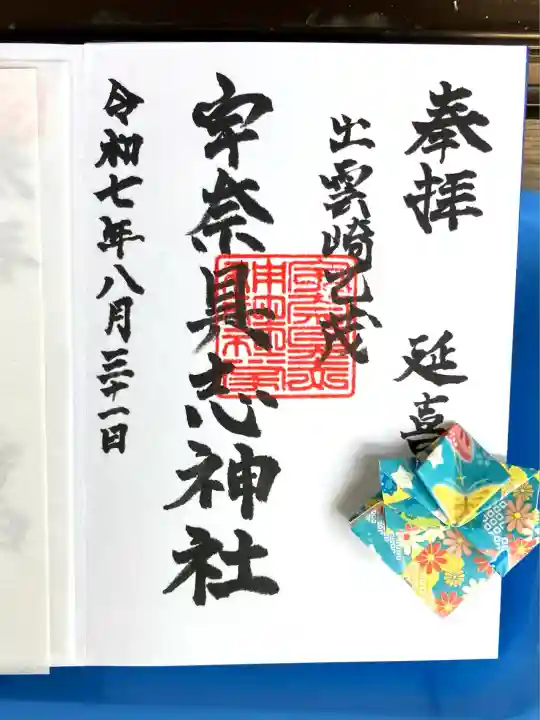 奉拝 延喜
出雲崎乙茂
宇奈具志神社
令和七年八月三十一日